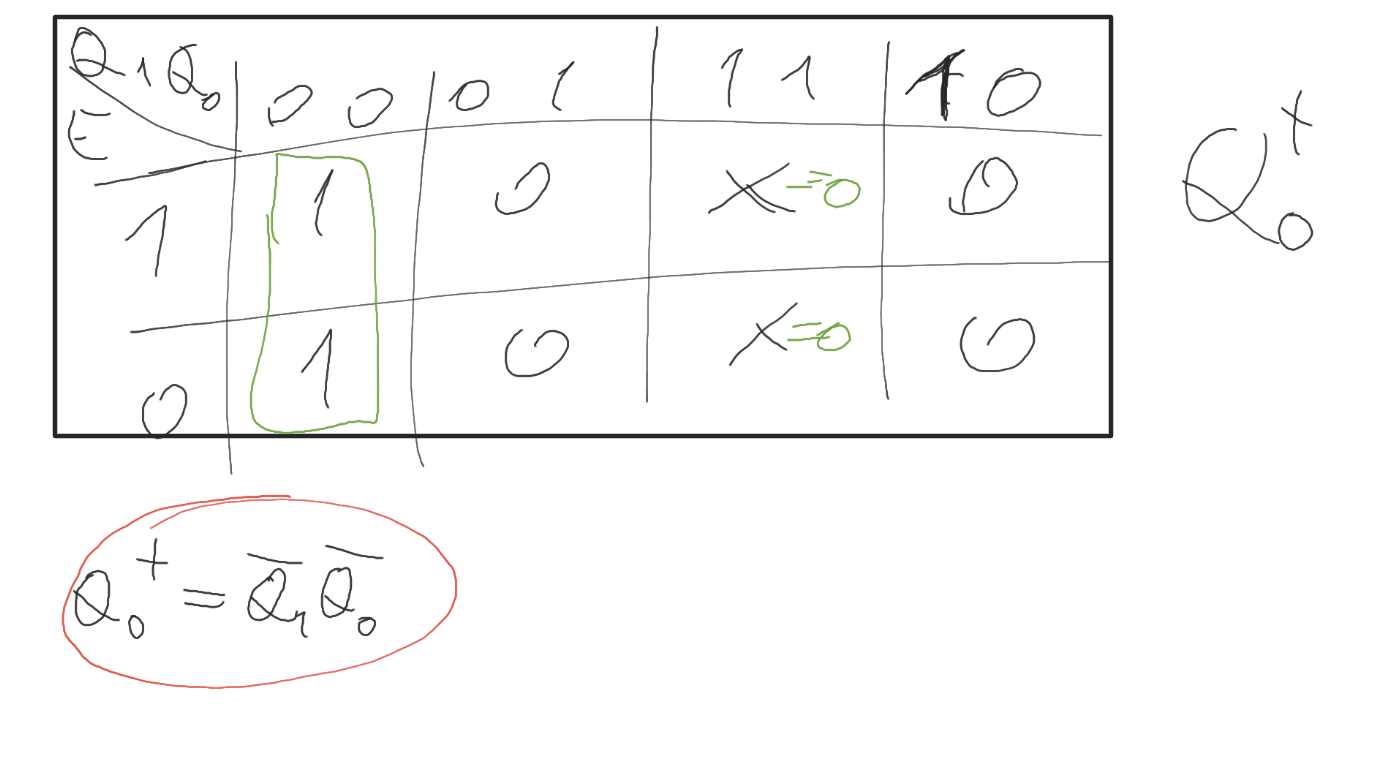 Q₁Q₀ 00 01 11 10
E
1 1 0 X=0 0 Q₀⁺
0 1 0 X=0 0
Q₀⁺ = Q̅₁Q̅₀